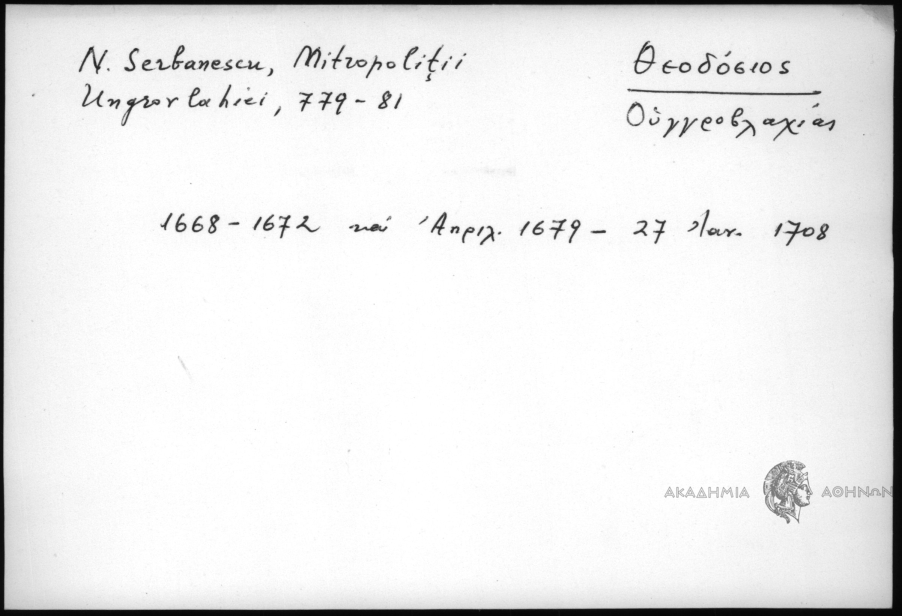 N. Serbanescu, Mitropoliţii
Ungrovlahiei, 779-81
Θεοδόσιος
Οὑγγροβλαχίας
1668-1672 καί Ἀπριλ. 1679 - 27 Ἰαν. 1708
ΑΚΑΔΗΜΙΑ ΑΘΗΝΩΝ